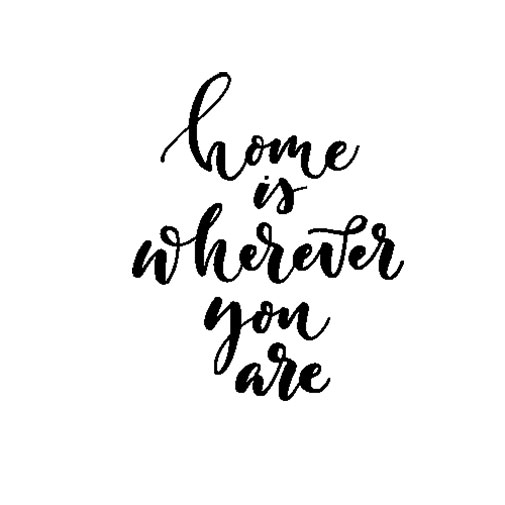 home
is
wherever
you
are